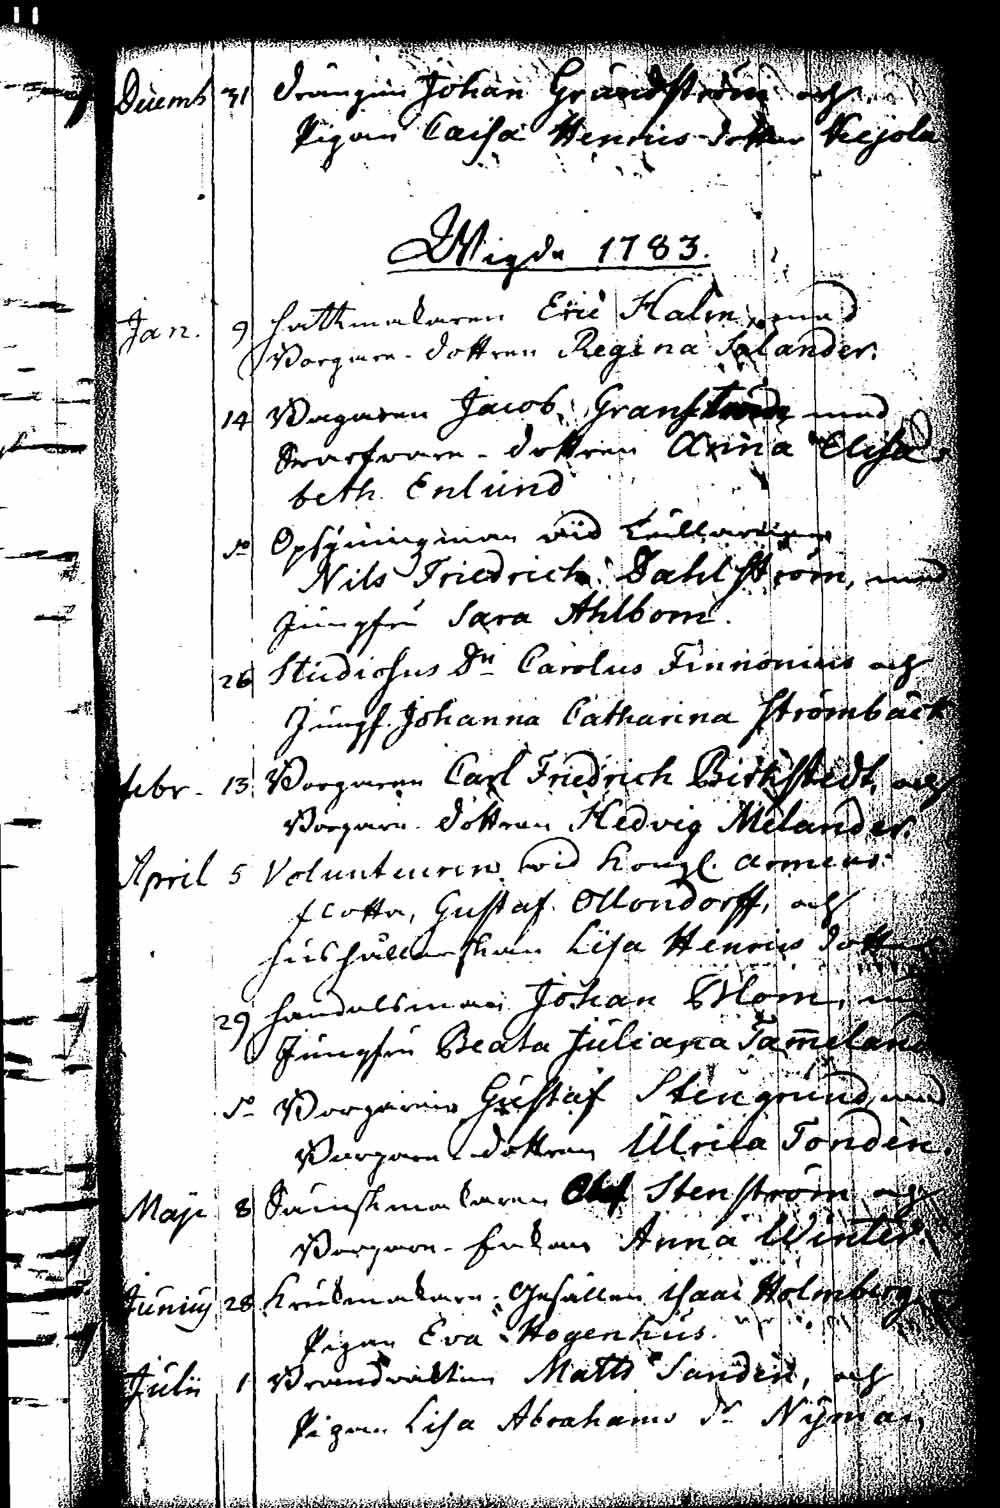 Decemb 31 Drängen Johan Grundström och
Pigan Caisa Henrics dotter Keijola
Wigde 1783.
Jan. 9 Hattmakaren Eric Halm, med
Borgare-dottren Regina Solander.
14 Borgaren Jacob Granström med
Swarfvare-dottren Anna Elisa-
beth Enlund
do Opsyningsman vid Tullarne
Nils Friedrich Dahlström, med
Jungfru Sara Ahlbom.
26 Studiosus Dn Carolus Finnonius och
Jungf. Johanna Catharina Strömbäck
Febr. 13 Borgaren Carl Friedrich Birkstedt, och
Borgare-dottren Hedvig Melander.
April 5 Volunteuren vid Kongl. Armeens
flotta, Gustaf Ollondorff, och
Hushållerskan Lisa Henrics dotter
29 Handelsman Johan Blom, med
Jungfru Beata Juliana Tam̄eland
do Borgaren Gustaf Stengrund, med
Borgare-dottren Ulrica Fonden.
Maji 8 Olof Stenström och
Borgare-Enkan Anna Winter
Junius 28 Krukmakare-Gesällen Isaac Holmberg
Pigan Eva Hogenhus.
Julii 1 Brandvakten Matts Sanden, och
Pigan Lisa Abrahams dr Nyman,